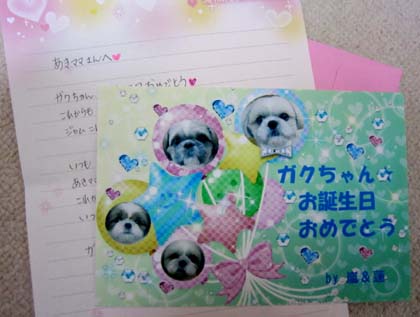 あきママさんへ♥
おめでとう♥
ガクちゃん
これからも
いつも
あきママ
これか
いつ
ガ
ガクちゃん☆
お誕生日
おめでとう
by 嵐&蓮